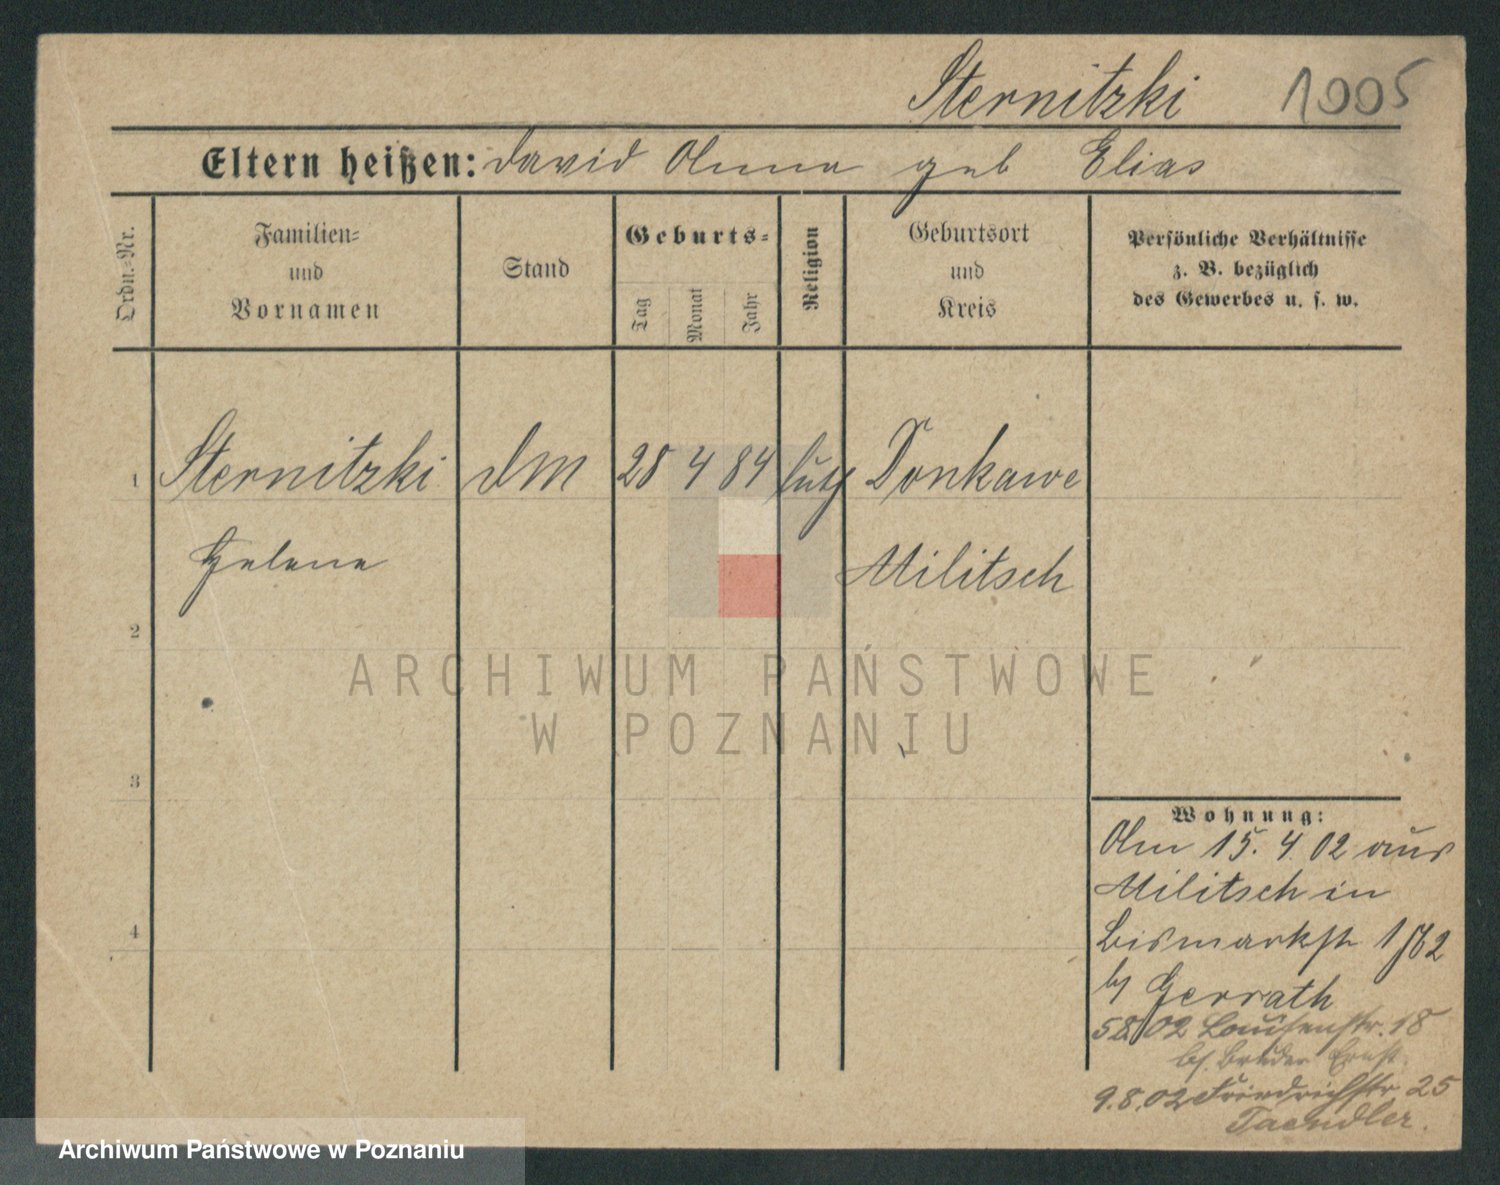 Sternitzki 1005
Eltern heißen: David Anna geb Elias
Ordn.-Nr.
Familien-
und
Vornamen
Stand
Geburts-
Tag
Monat
Jahr
Religion
Geburtsort
und
Kreis
Persönliche Verhältnisse
z. B. bezüglich
des Gewerbes u. s. w.
1 Sternitzki DM 28 4 84 luth Donkawe
Helene Militsch
2
ARCHIWUM PAŃSTWOWE
W POZNANIU
3
Wohnung:
Am 15. 4. 02 aus
Militsch in
4
Bismarkstr
bj Gerrath
5 8 02 Louisenstr. 18
bj. Bruder Ernst.
9.8.02 Friedrichstr 25
Taendler.
Archiwum Państwowe w Poznaniu